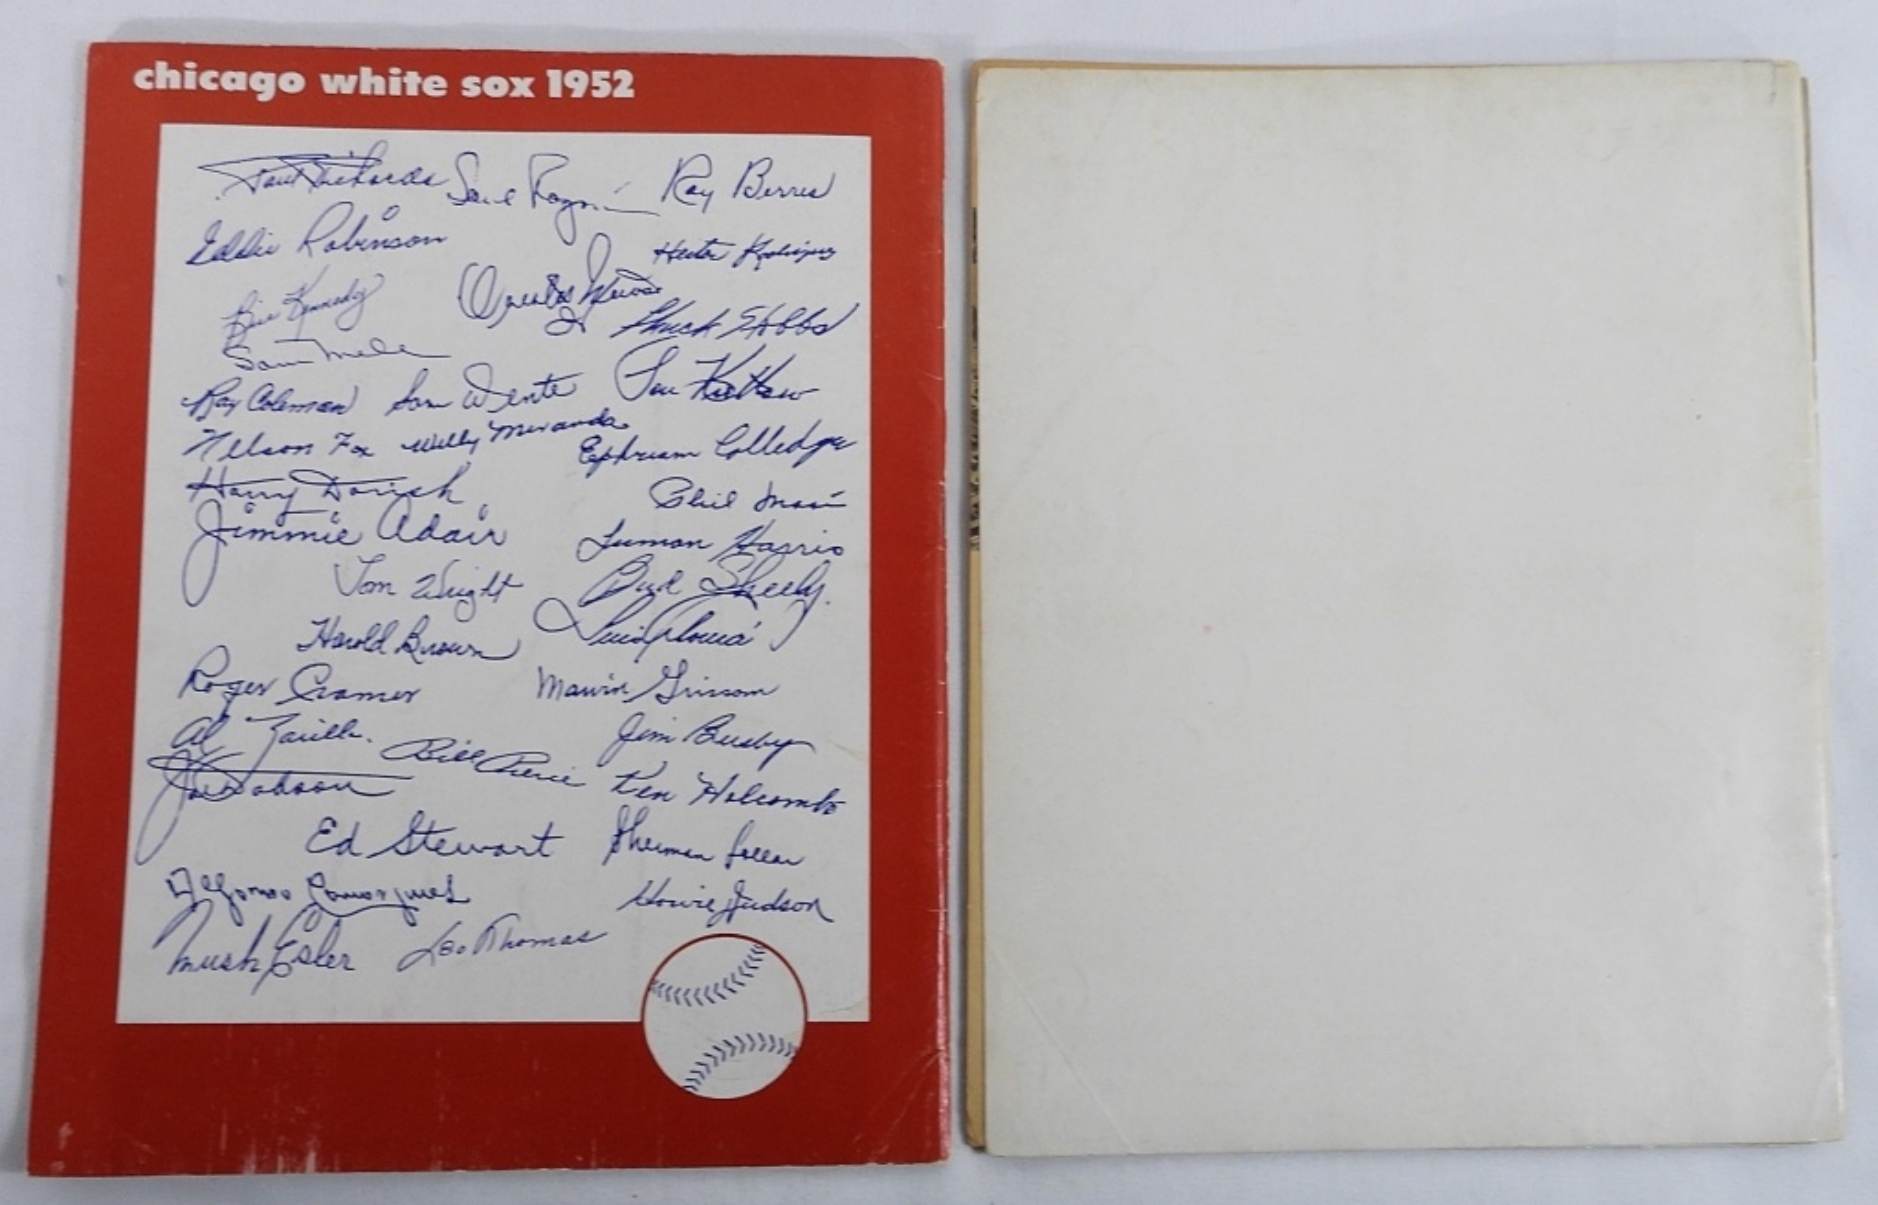 chicago white sox 1952
Paul Richards Saul Rogovin Ray Berres
Eddie Robinson
Hector Rodriguez
Bill Kennedy Orestes Minoso
Chuck Stobbs
Sam Mele
Ray Coleman Sam Dente Lou Kretlow
Nelson Fox Willy Miranda
Ephriam Colledge
Harry Dorish
Phil Masi
Jimmie Adair Luman Harris
Tom Wright Bud Sheely
Harold Brown Luis Aloma
Roger Cramer Marvin Grissom
Al Zarilla Jim Busby
Joe Dobson Bill Pierce Ken Holcombe
Ed Stewart Sherman Lollar
Alfonso Carrasquel Howie Judson
Mush Esler Leo Thomas